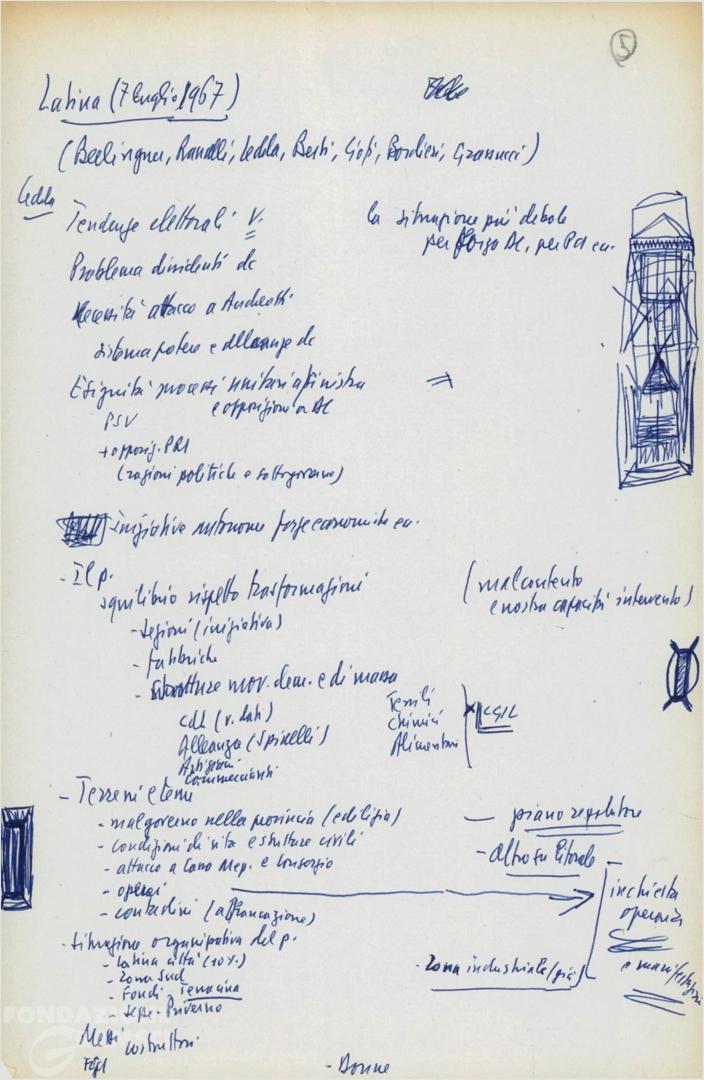 5
Latina (7 luglio 1967)
(Berlinguer, Ranalli, Ledda, Berti, Giofi, Bordieri, Grassucci)
Ledda
Tendenze elettorali V.
la situazione più debole
per forza DC, per PCI ecc.
Problema dirigenti dc
Necessità attacco a Andreotti
sistema potere e alleanze dc
Esiguità processi unitari a sinistra
e opposizioni a DC
PSU
+ opposiz. PRI
(ragioni politiche e sottogoverno)
Iniziative autonome forze economiche ecc.
- Il p.
squilibrio rispetto trasformazioni
(malcontento
e nostra capacità intervento)
- sezioni (iniziativa)
- fabbriche
- strutture mov. dem. e di massa
CdL (v. dati)
Alleanza (Spinelli)
Artigiani
Commercianti
Tessili
Chimici
Alimentari
CGIL
- Terreni e temi
- malgoverno nella provincia (edilizia)
- piano regolatore
- condizioni di vita e strutture civili
- attacco a Cassa Mezz. e Consorzio
- altro su litorale -
- operai
- contadini (affrancazione)
inchiesta
operaia
e manifestazioni
- Situazione organizzativa del p.
- Latina città (10%)
- Zona Sud
- Fondi Terracina
- Sezze-Priverno
- Zona industriale (già)
Mezzi
costruttori
FGCI
- Donne
FONDAZI
G